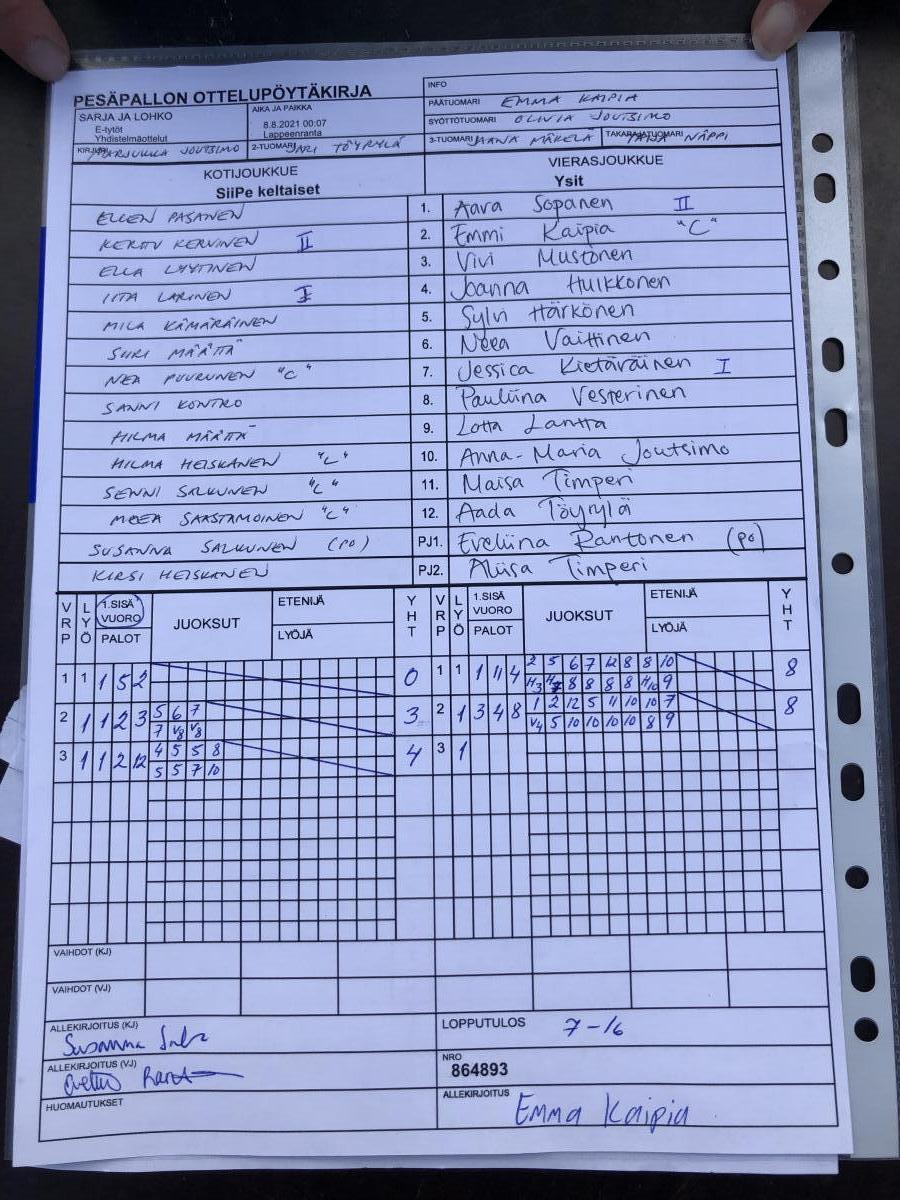 PESÄPALLON OTTELUPÖYTÄKIRJA
SARJA JA LOHKO
E-tytöt
Yhdistelmäottelut
AIKA JA PAIKKA
8.8.2021 00:07
Lappeenranta
INFO
PÄÄTUOMARI EMMA KAIPIA
SYÖTTÖTUOMARI OLIVIA JOUTSIMO
KIRJURI MARJUKKA JOUTSIMO 2-TUOMARI JARI TÖYRYLÄ 3-TUOMARI JAANA MÄKELÄ TAKARAJATUOMARI TAIJA NÄPPI
KOTIJOUKKUE VIERASJOUKKUE
SiiPe keltaiset Ysit
ELLEN PASANEN 1. Aava Sopanen II
KERTTU KERVINEN II 2. Emmi Kaipia "C"
ELLA LYYTINEN 3. Vivi Mustonen
IITA LARINEN I 4. Joanna Hulkkonen
MILA KÄMÄRÄINEN 5. Sylvi Härkönen
SURI MÄÄTTÄ 6. Neea Vaittinen
NEA PUURUNEN "C" 7. Jessica Kietäväinen I
SANNI KONTRO 8. Pauliina Vesterinen
HILMA MÄÄTTÄ 9. Lotta Lantta
HILMA HEISKANEN "L" 10. Anna-Maria Joutsimo
SENNI SALKUNEN "L" 11. Maisa Timperi
MEEA SAASTAMOINEN "L" 12. Aada Töyrylä
SUSANNA SALKUNEN (PO) PJ1. Eveliina Rantonen (po)
KIRSI HEISKANEN PJ2. Aliisa Timperi
VRP LYÖ 1.SISÄ VUORO PALOT JUOKSUT ETENIJÄ LYÖJÄ YHT VRP LYÖ 1.SISÄ VUORO PALOT JUOKSUT ETENIJÄ LYÖJÄ YHT
1 1 1 5 2 0 1 1 1 11 4 2 5 6 7 12 8 8 10 8
H3 H7 8 8 8 8 H10 9
2 1 1 2 3 5 6 7 3 2 1 3 4 8 1 2 12 5 11 10 10 7 8
7 V8 V8 V4 5 10 10 10 10 8 9
3 1 1 2 12 4 5 5 8 4 3 1
5 5 7 10
VAIHDOT (KJ)
VAIHDOT (VJ)
ALLEKIRJOITUS (KJ) LOPPUTULOS 7-16
Susanna
ALLEKIRJOITUS (VJ) NRO
864893
HUOMAUTUKSET ALLEKIRJOITUS Emma Kaipia